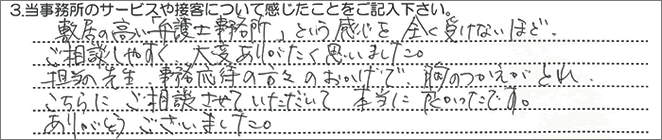 3.当事務所のサービスや接客について感じたことをご記入下さい。
敷居の高い「弁護士事務所」という感じを全く受けないほど、
ご相談しやすく大変ありがたく思いました。
担当の先生、事務応待の方々のおかげで胸のつかえがとれ、
こちらにご相談させていただいて本当に良かったです。
ありがとうございました。